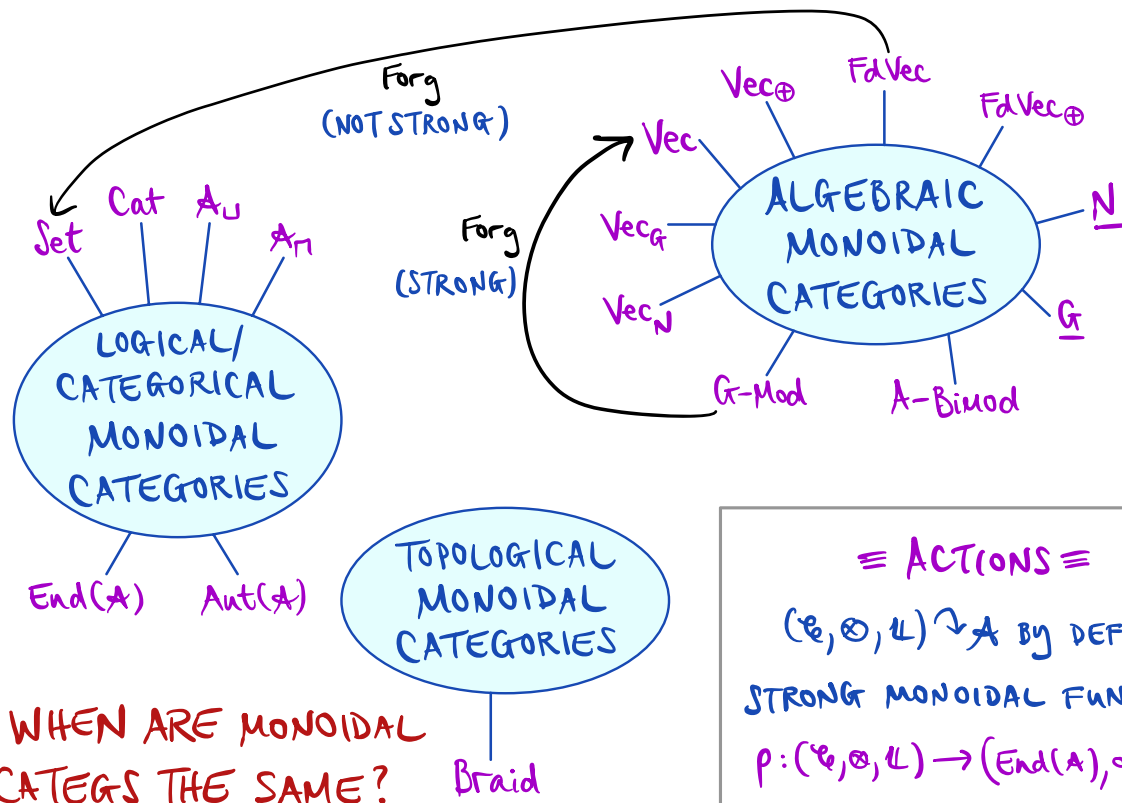 Forg
(NOT STRONG)
Vec⊕
FdVec
FdVec⊕
Vec
N
Vec_G
Vec_N
G
G-Mod
A-Bimod
ALGEBRAIC
MONOIDAL
CATEGORIES
Forg
(STRONG)
Set
Cat
A⊔
A⊓
LOGICAL/
CATEGORICAL
MONOIDAL
CATEGORIES
End(A)
Aut(A)
TOPOLOGICAL
MONOIDAL
CATEGORIES
Braid
WHEN ARE MONOIDAL
CATEGS THE SAME?
≡ ACTIONS ≡
(𝒞,⊗,𝟙) ↷ A BY DEF
STRONG MONOIDAL FUN
ρ:(𝒞,⊗,𝟙) → (End(A),